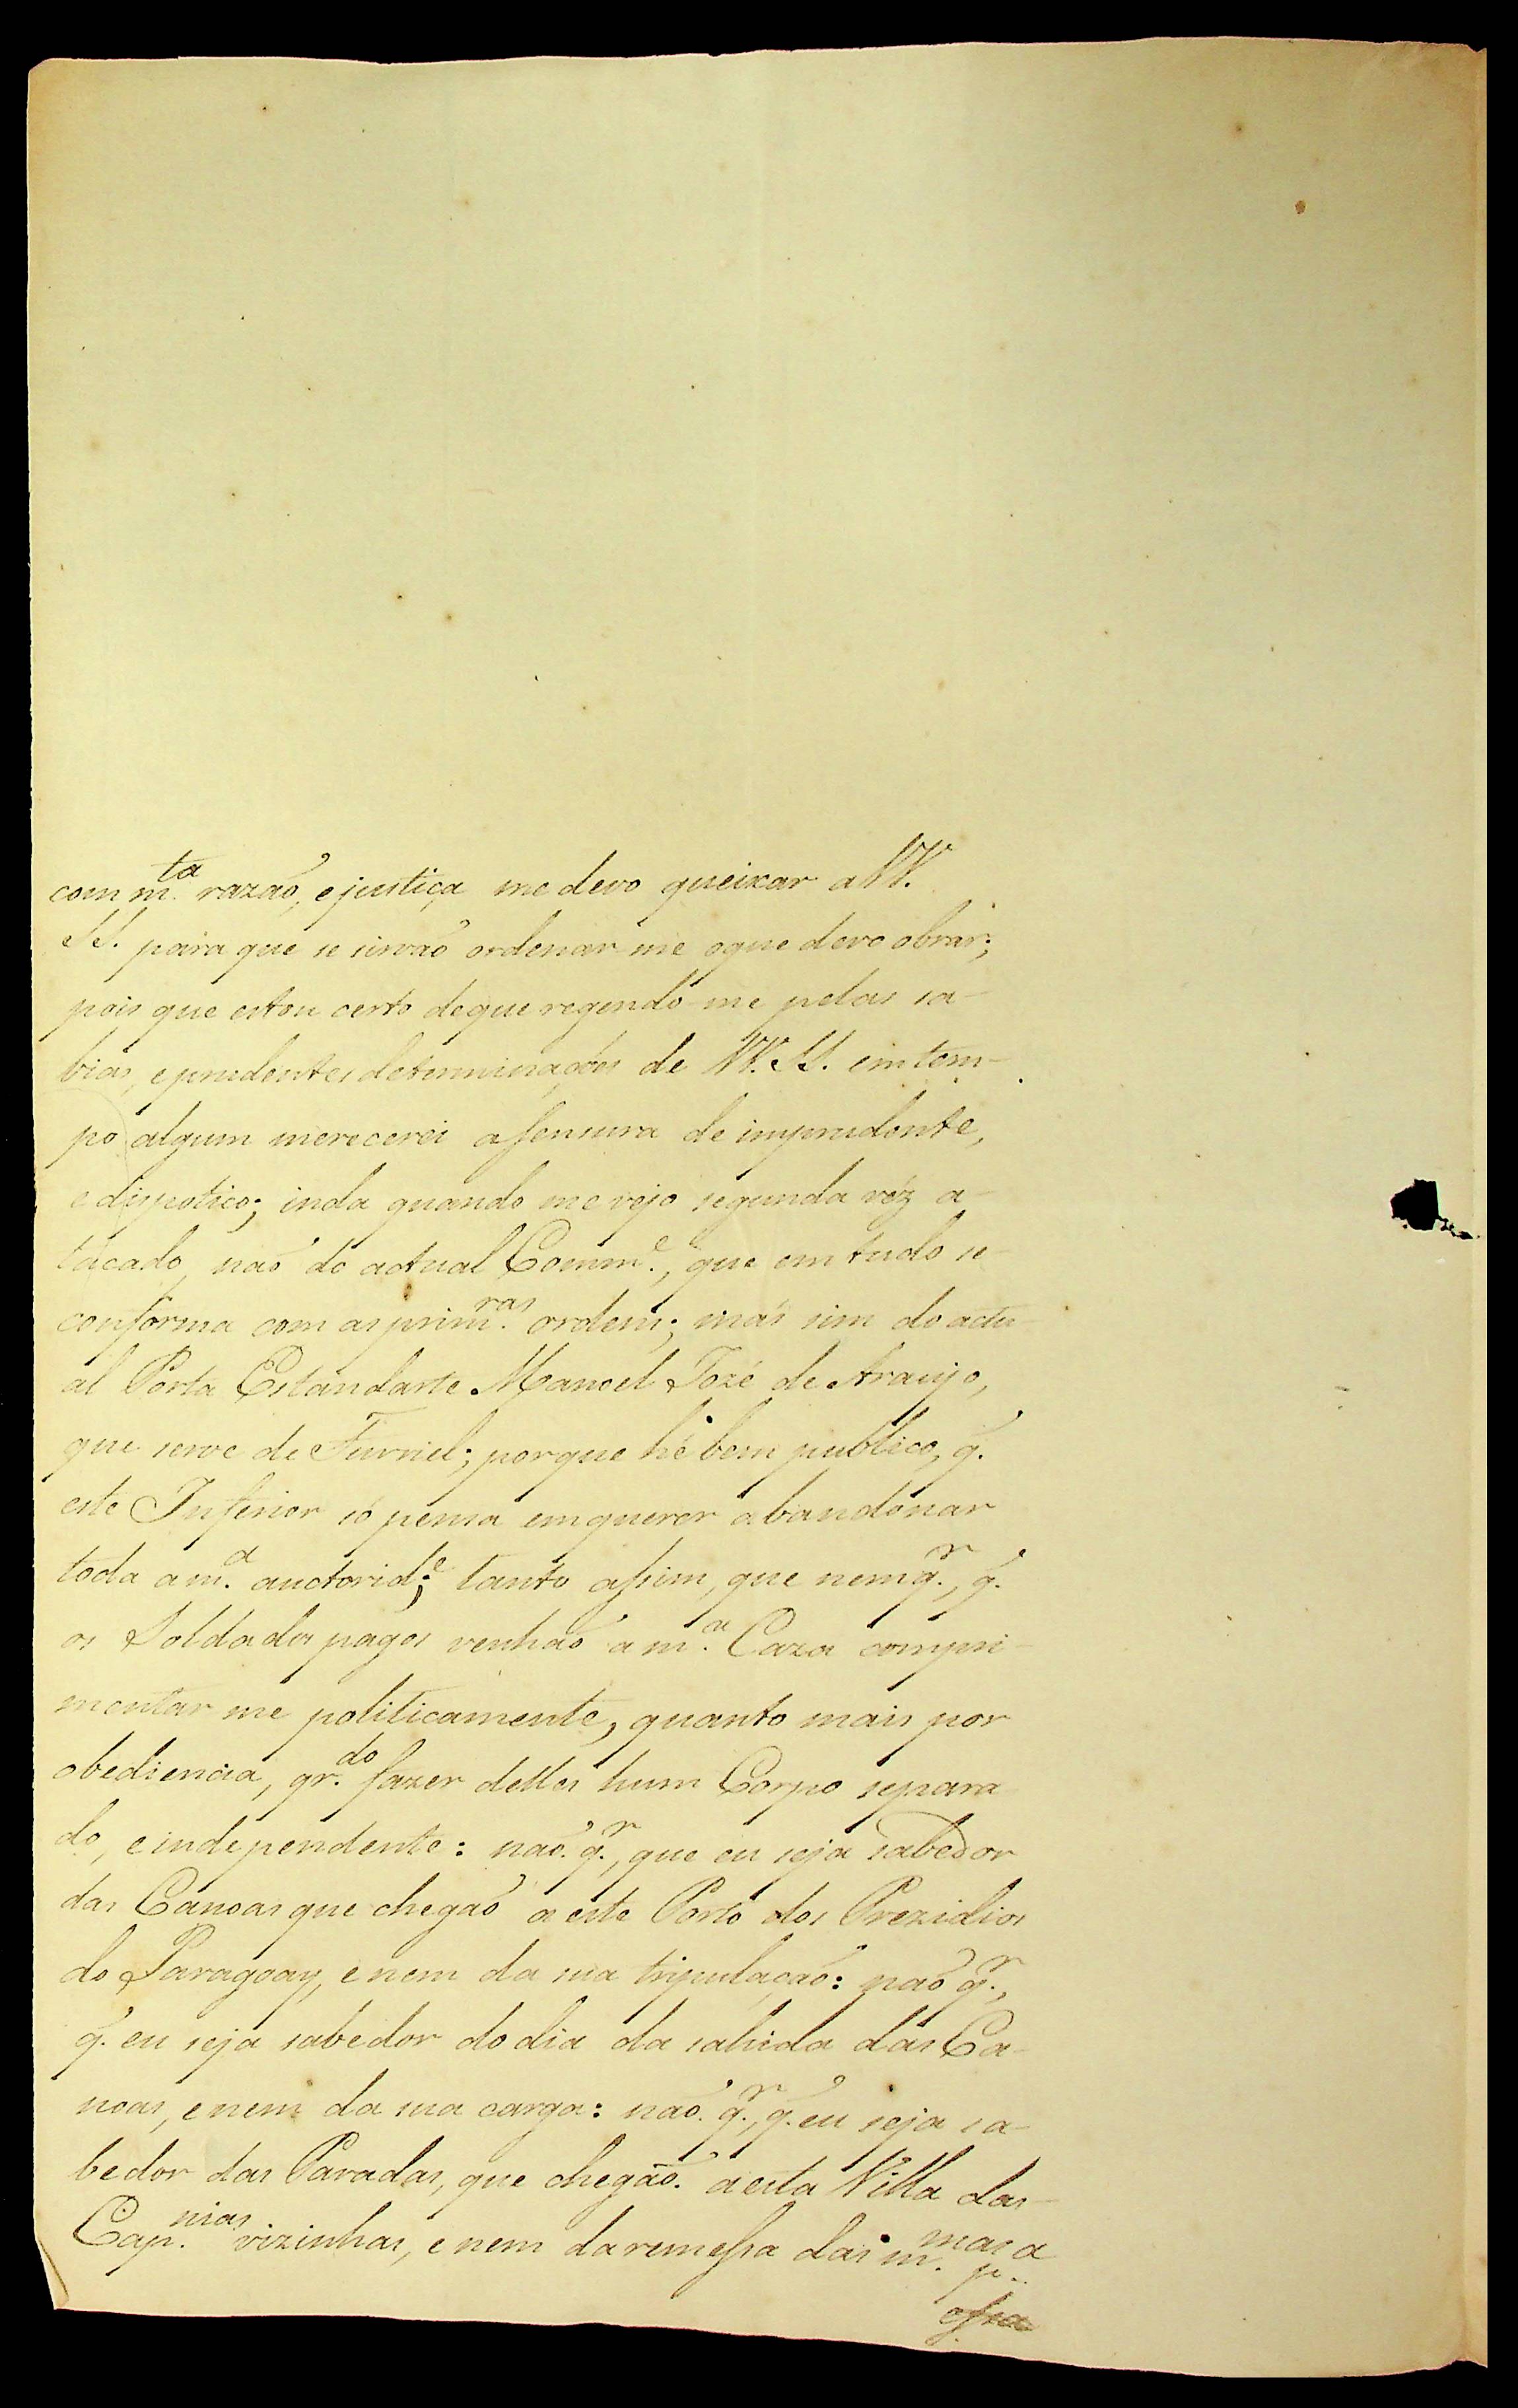 com m.ta razaõ, e justiça me devo queixar a VV.
SS. para que se sirvaõ ordenar-me o que devo obrar;
pois que estou certo de que regendo-me pelas sa-
bias, e prudentes determinações de VV. SS. em tem-
po algum merecerei a sensura de imprudente,
e dispotico; inda quando me vejo segunda vêz a-
tacado, naõ do actual Comm.e, que em tudo se
conforma com as prim.ras ordens; más sim do actu-
al Porta Estandarte Manoel Jozé de Araujo,
que serve de Furriel; porque hé bem publico, q̃.
este Inferior só pensa em querer abandonar
toda a m.a auctorid.e; tanto assim, que nem q.r, q̃.
os Soldados pagos venhaõ a m.a Caza compri-
mentar-me politicamente, quanto mais por
obediencia, qr.do fazer delles hum Corpo separa-
do, e independente: naõ q.r, que eu seja sabedor
das Canoas que chegaõ a este Porto dos Prezidios
do Paragoay, e nem da sua tripulaçaõ: naõ q.r,
q̃. eu seja sabedor do dia da sahida das Ca-
noas, e nem da sua carga: naõ q.r, q̃. eu seja sa-
bedor das Paradas, que chegaõ a esta Villa das
Cap.nias vizinhas, e nem da remessa das m.mas p.a